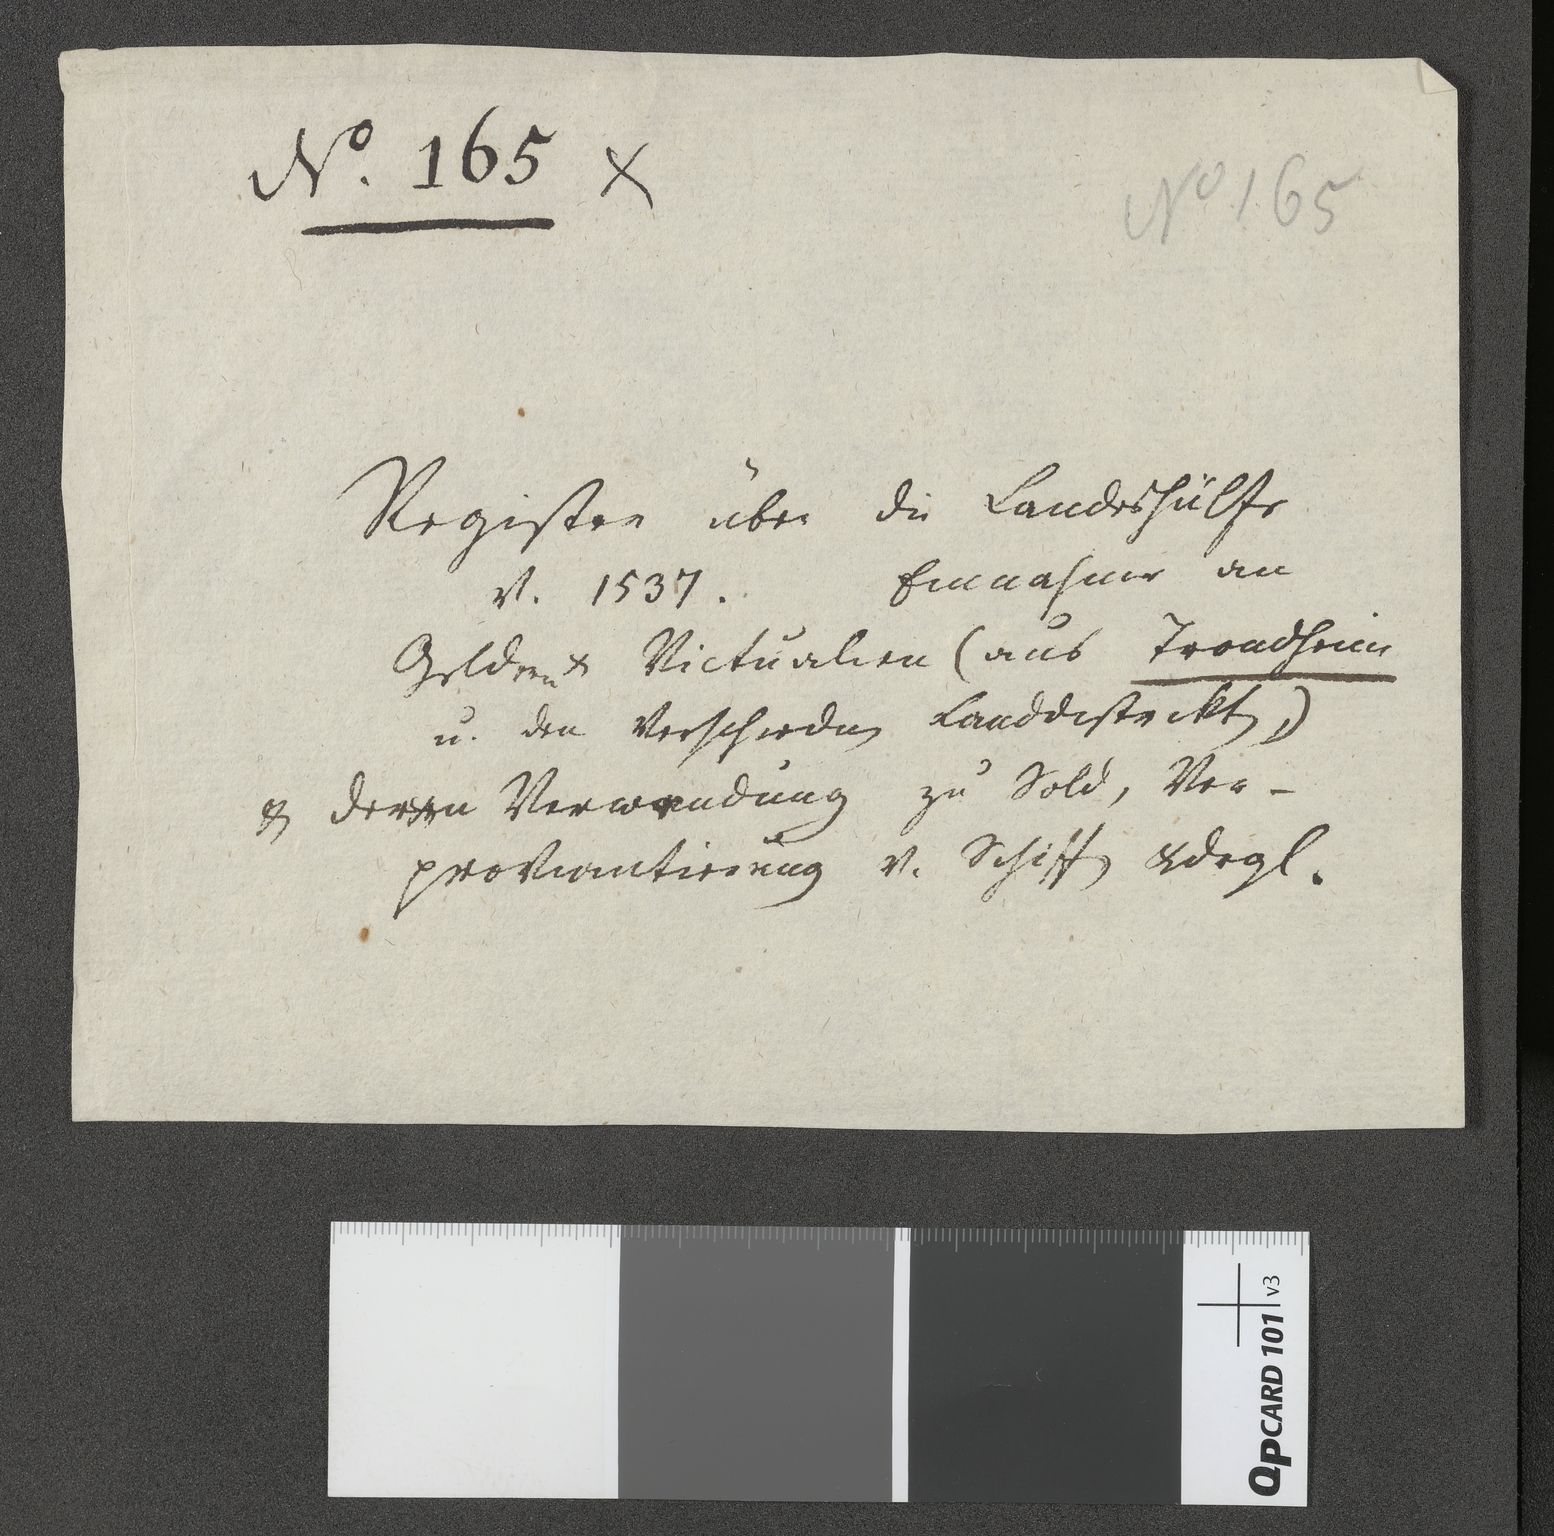 No. 165 x
No 165
Register über die Landeshülfe
v. 1537. Einnahme an
Geldern & Victualien (aus Trondheim
u. den verschieden Landdistrikt,)
& deren Verwendung zu Sold, Ver-
proviantierung v. Schiff &drgl.
QPCARD 101 v3